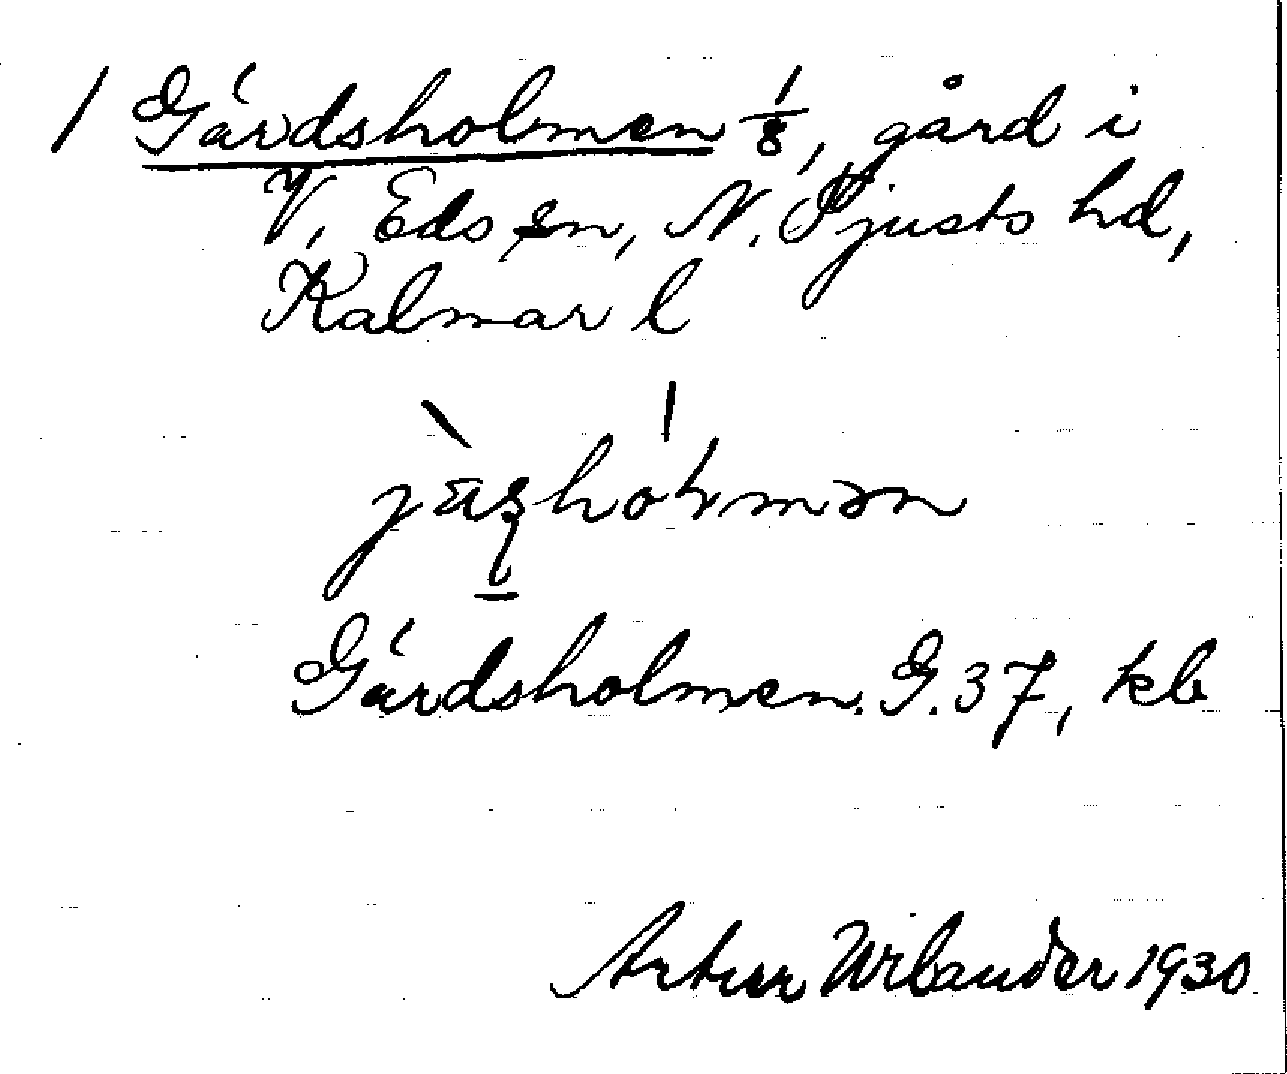 1 Gärdsholmen 1/8, gård i
V. Eds sn, N. Tjusts hd,
Kalmar l
Gärdsholmen. G. 37, kb
Artur Wilander 1930